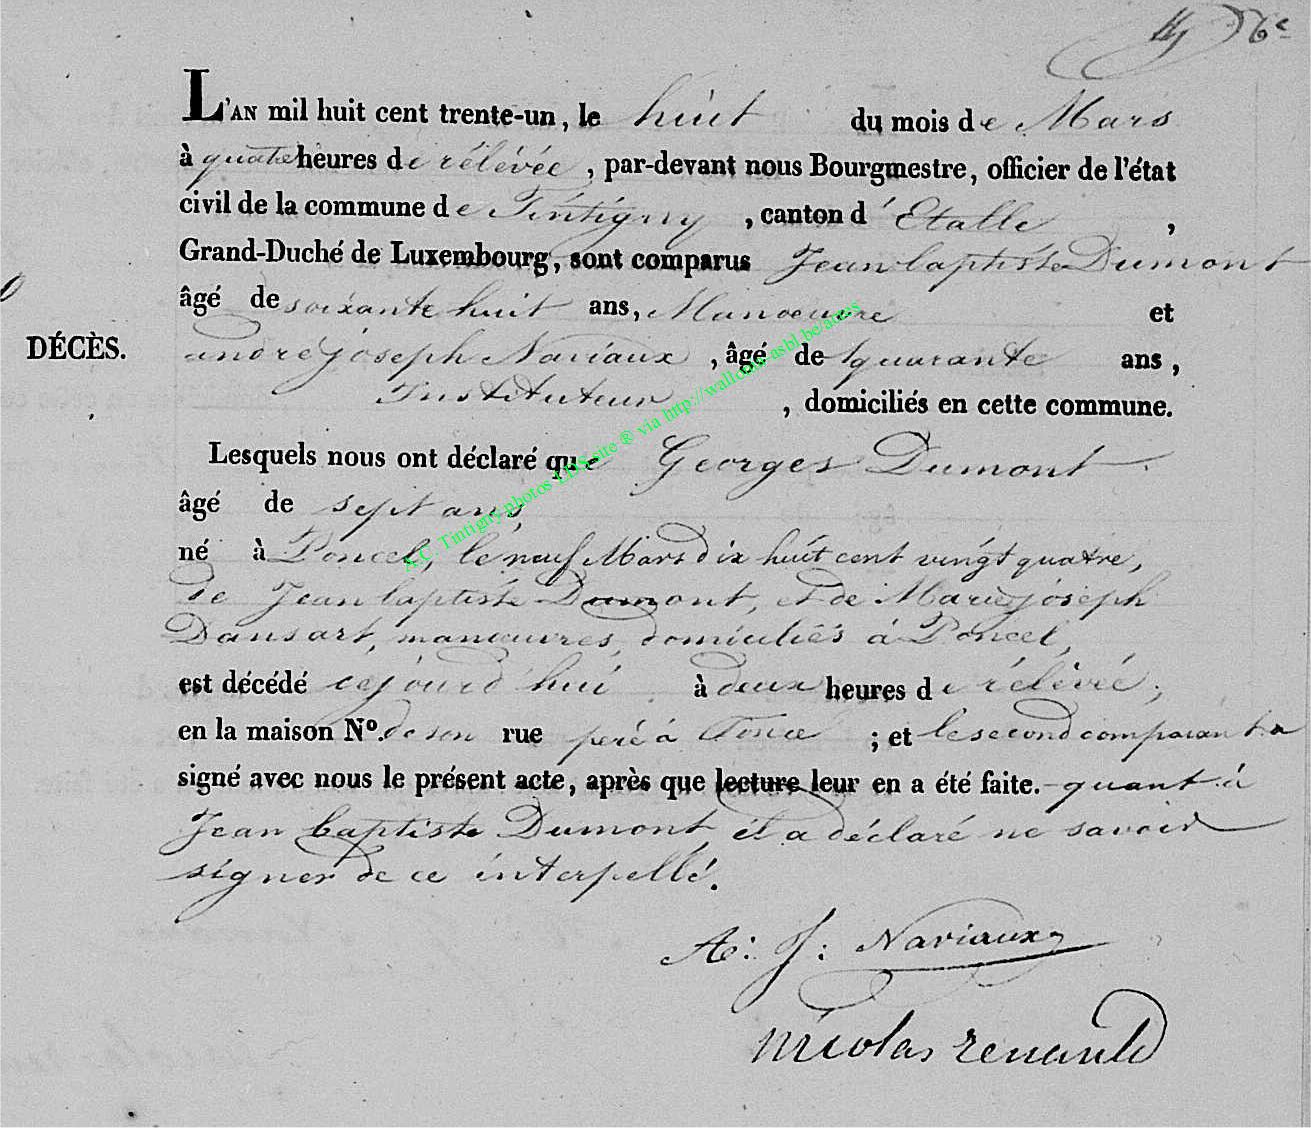 6e
L'AN mil huit cent trente-un, le huit du mois de Mars
à quatre heures de rélévée, par-devant nous Bourgmestre, officier de l'état
civil de la commune de Tintigny, canton d'Etalle,
Grand-Duché de Luxembourg, sont comparus Jean baptiste Dumont
âgé de soixante huit ans, Manoeuvre et
DÉCÈS.
andré joseph Naviaux, âgé de quarante ans,
Instituteur, domiciliés en cette commune.
Lesquels nous ont déclaré que Georges Dumont
âgé de sept ans,
né à Poncel, le neuf Mars dix huit cent vingt quatre,
de Jean baptiste Dumont, et de Marie joseph
Dansart, manœuvres, domiciliés à Poncel,
est décédé cejourd'hui à deux heures de rélévée,
en la maison No. de son rue peré à Poncel; et le second comparant a
signé avec nous le présent acte, après que lecture leur en a été faite. quant à
Jean baptiste Dumont il a déclaré ne savoir
signer de ce interpellé.
A: J: Naviaux
nicolas renauld
A.C. Tintigny photos LDS site ® via http://wallonia-asbl.be/actes